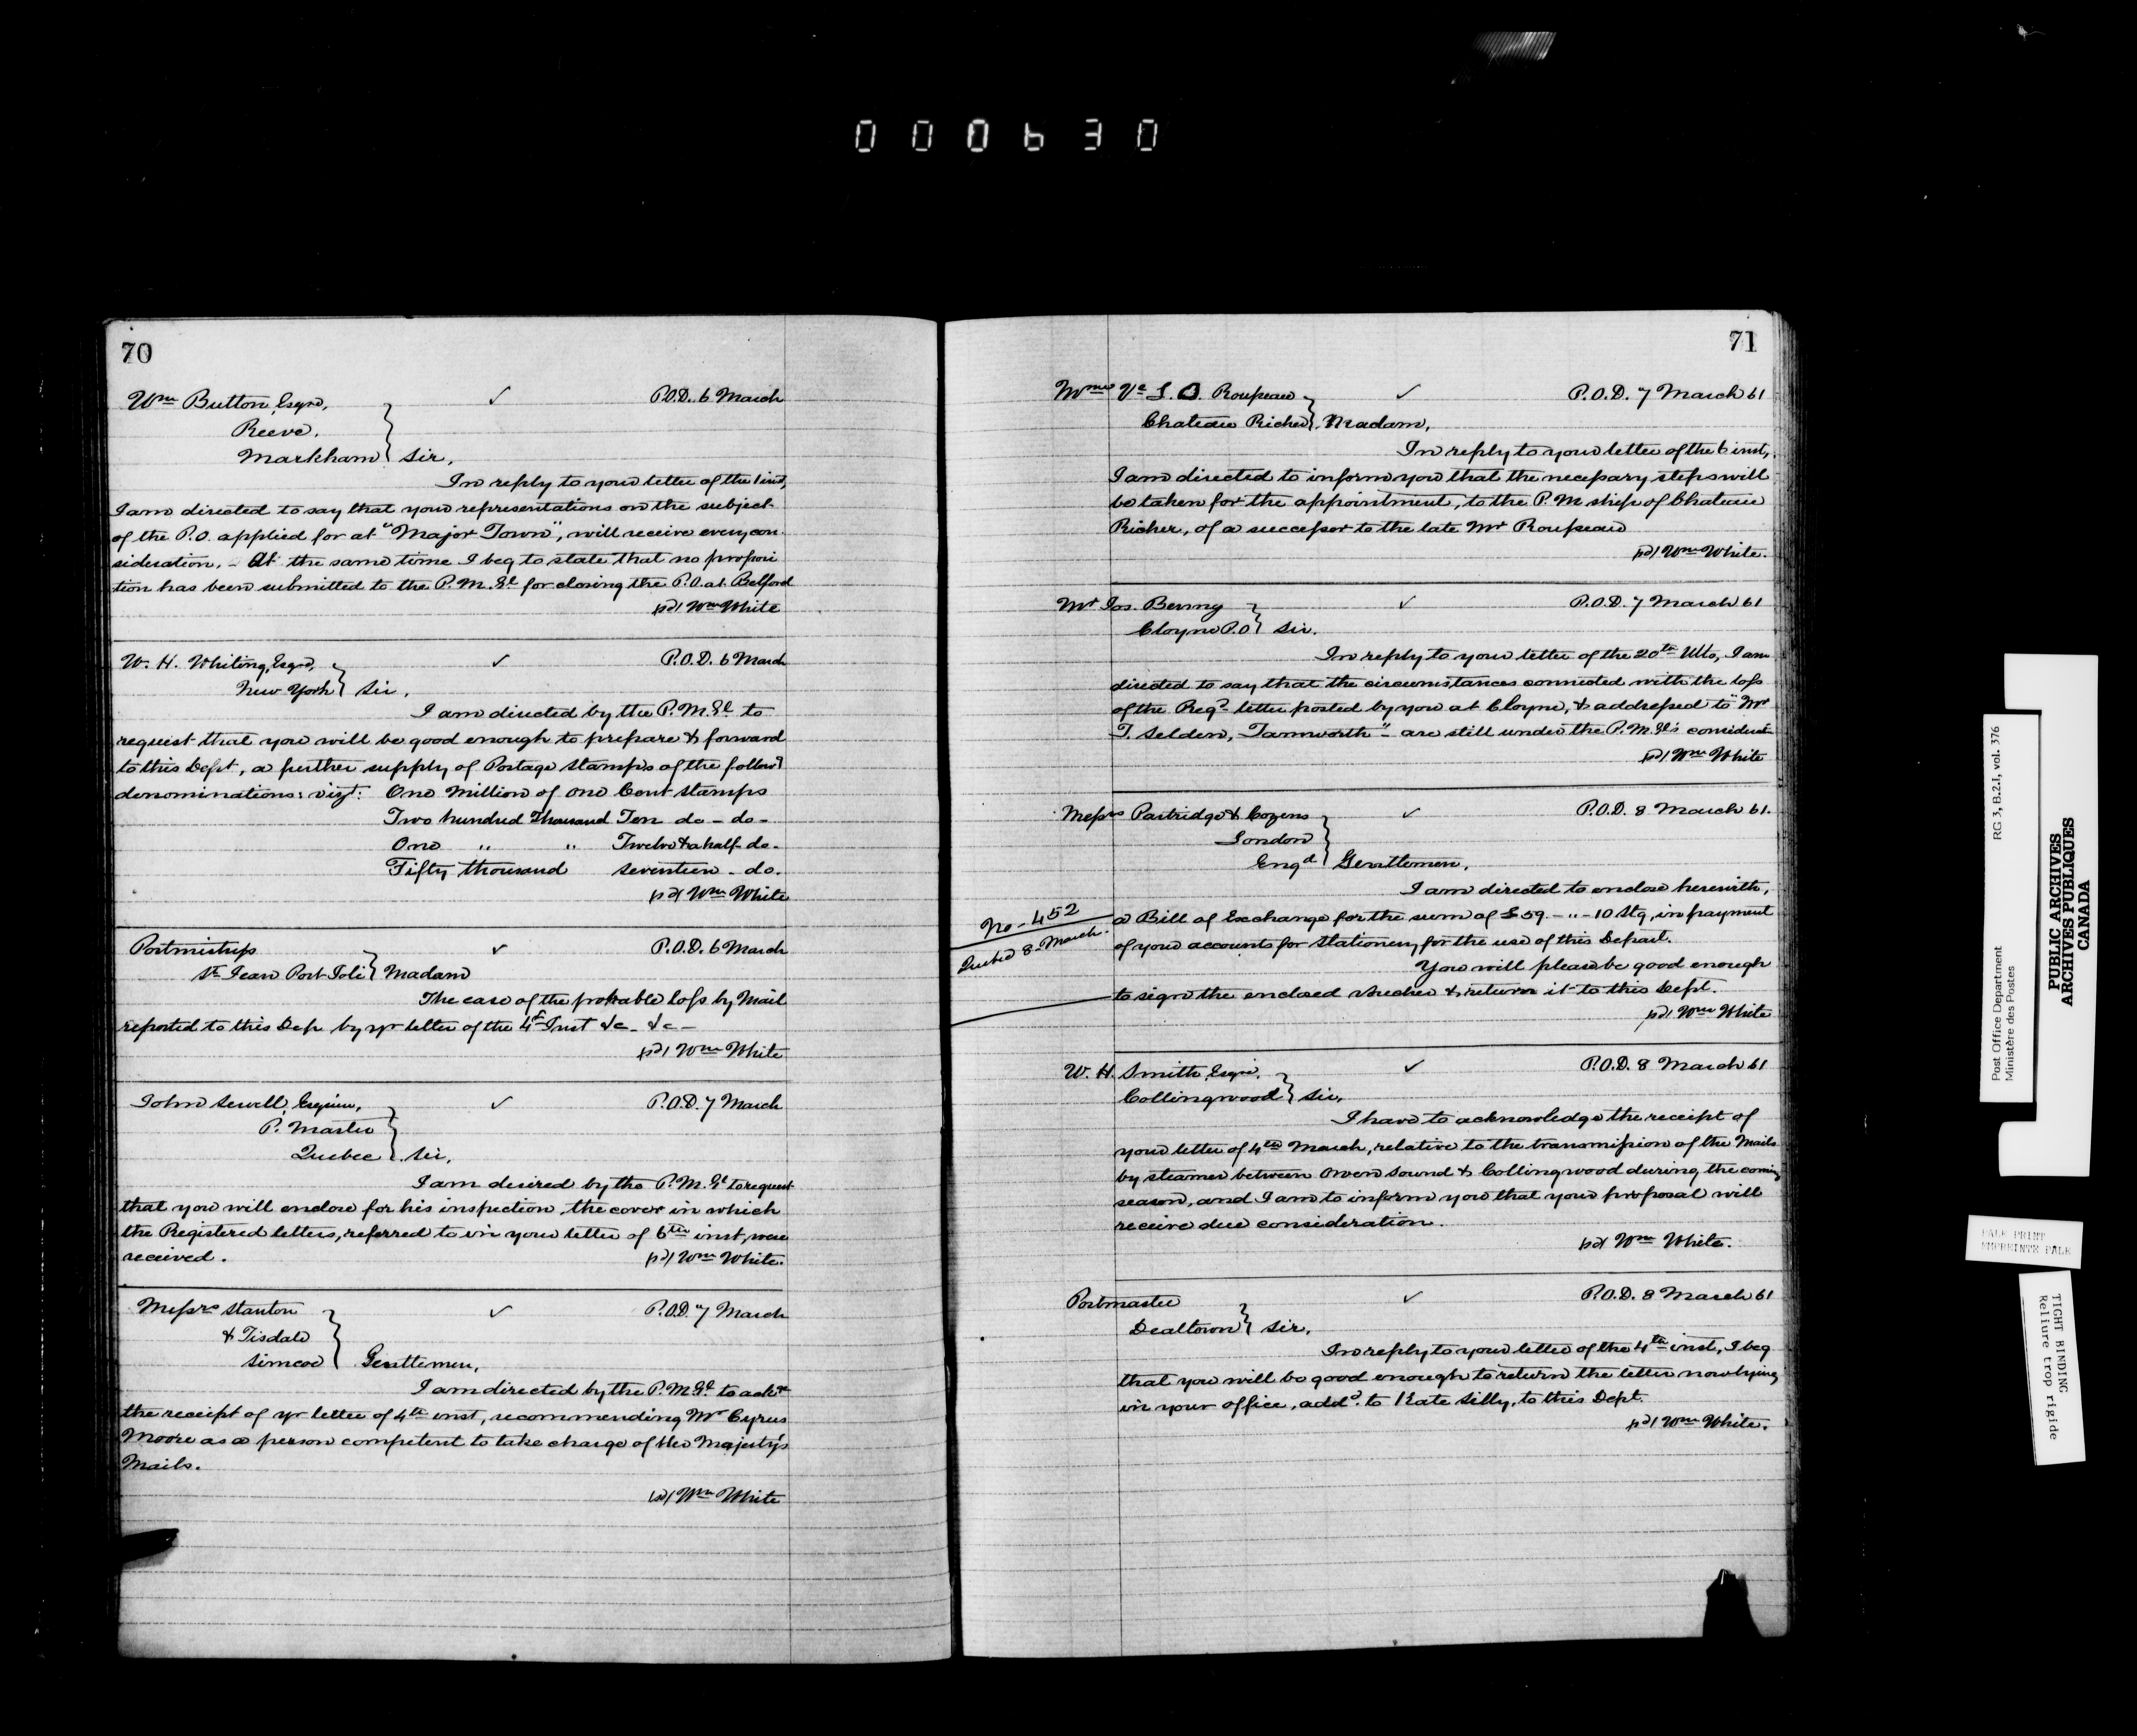 000630
70
Wm Button, Esqre, ✓ P.O.D. 6 March
Reeve,
Markham } Sir,
In reply to your letter of the 1 inst,
I am directed to say that your representations on the subject
of the P.O. applied for at "Major Town", will receive every con-
sideration. - At the same time I beg to state that no proposi
tion has been submitted to the P.M.Gl for closing the P.O. at Belford
sd/ Wm White
W. H. Whiting, Esqre, ✓ P.O.D. 6 March
New York } Sir,
I am directed by the P.M.Gl to
request that you will be good enough to prepare & forward
to this Dept, a further supply of Postage Stamps of the follow'g
denominations: vizt: One Million of One Cent Stamps
Two hundred Thousand Ten do - do -
One " " Twelve & a half - do -
Fifty thousand Seventeen - do.
sd/ Wm White
Postmistress ✓ P.O.D. 6 March
St Jean Port Joli } Madam
The case of the probable loss by Mail
reported to this Dep by yr letter of the 4th Inst &c - &c -
sd/ Wm White
John Sewell, Esquire, ✓ P.O.D. 7 March
P. Master
Quebec } Sir,
I am desired by the P.M.Gl to request
that you will enclose for his inspection, the cover in which
the Registered letters, referred to in your letter of 6th inst, were
received. sd/ Wm White.
Messrs Stanton ✓ P.O.D. 7 March
& Tisdale
Simcoe } Gentlemen,
I am directed by the P.M.Gl to ackn
the receipt of yr letter of 4th inst, recommending Mr Cyrus
Moore as a person competent to take charge of Her Majesty's
Mails.
sd/ Wm White
71
Mme Ve L. O Rousseau ✓ P.O.D. 7 March 61
Chateau Richer } Madam,
In reply to your letter of the 6 inst,
I am directed to inform you that the necessary steps will
be taken for the appointment, to the P.M ship of Chateau
Richer, of a successor to the late Mr Rousseau
sd/ Wm White.
Mr Jos. Berney ✓ P.O.D. 7 March 61
Cloyne P.O } Sir.
In reply to your letter of the 20th Ulto, I am
directed to say that the circumstances connected with the loss
of the Regd letter posted by you at Cloyne, & addressed to "Mr
T. Selden, Tamworth" - are still under the P.M.Gl's considerat-
sd/ Wm White
Messrs Partridge & Cozens ✓ P.O.D. 8 March 61.
London
Engd } Gentlemen,
I am directed to enclose herewith,
No - 452
Quebec 8 - March.
a Bill of Exchange for the sum of £59 - " - 10 Stg, in payment
of your accounts for Stationery for the use of this Depart.
You will please be good enough
to sign the enclosed Voucher & return it to this Dept.
sd/ Wm White
W. H. Smith, Esqre. ✓ P.O.D. 8 March 61
Collingwood } Sir,
I have to acknowledge the receipt of
your letter of 4th March, relative to the transmission of the Mails
by steamer between Owen Sound & Collingwood during the coming
season, and I am to inform you that your proposal will
receive due consideration.
sd/ Wm White.
Postmaster ✓ P.O.D. 8 March 61
Dealtown } Sir,
In reply to your letter of the 4th inst, I beg
that you will be good enough to return the letter now lying
in your office, addd. to Kate Silly, to this Dept.
sd/ Wm White.
Post Office Department RG 3, B.2.I, vol. 376
Ministère des Postes
PUBLIC ARCHIVES
ARCHIVES PUBLIQUES
CANADA
PALE PRINT
EMPREINTE PALE
TIGHT BINDING
Reliure trop rigide